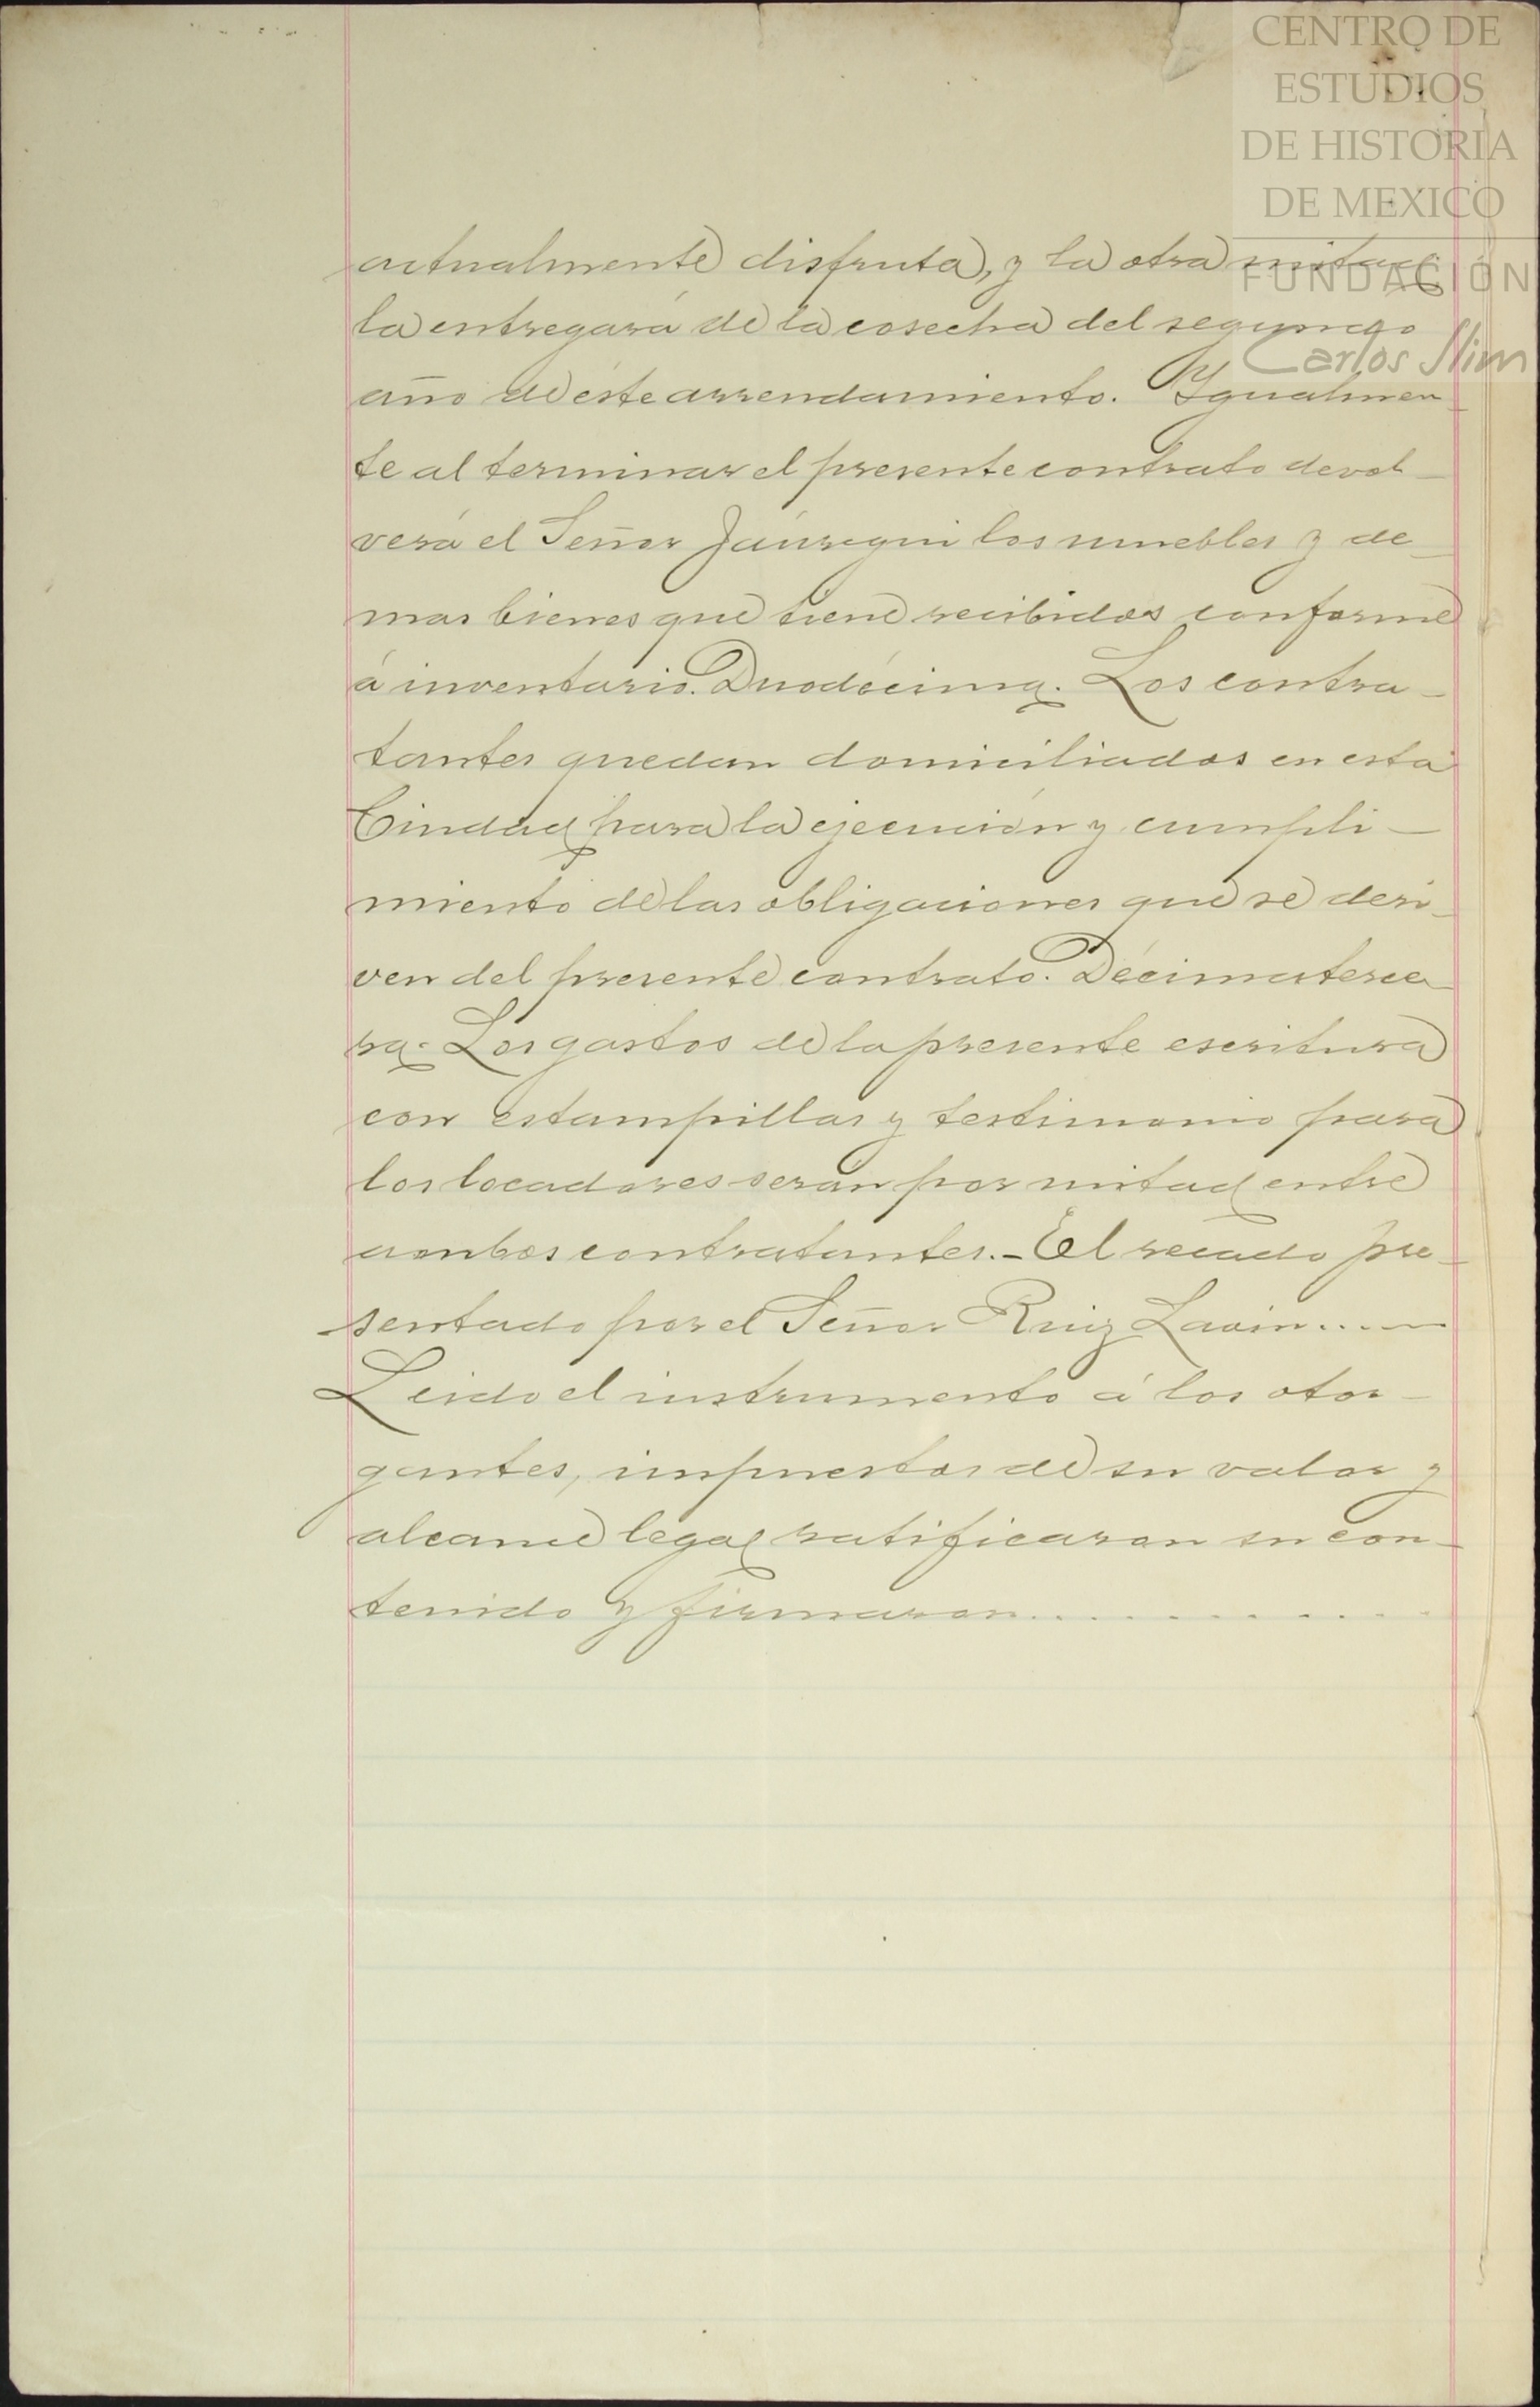 CENTRO DE
ESTUDIOS
DE HISTORIA
DE MEXICO
FUNDACIÓN
Carlos Slim
actualmente disfruta, y la otra mitad
la entregará de la cosecha del segundo
año de éste arrendamiento. Ygualmen
te al terminar el presente contrato devol-
verá el Señor Jáuregui los muebles y de-
mas bienes que tiene recibidos conforme
á inventario. Duodécima. Los contra-
tantes quedan domiciliados en esta
Ciudad para la ejecución y cumpli-
miento de las obligaciones que se deri-
ven del presente contrato. Décimaterce
ra. Los gastos de la presente escritura
con estampillas y testimonio para
los locadores serán por mitad entre
ambos contratantes.- El recado pre-
sentado por el Señor Ruiz Lavin....-
Leido el instrumento á los otor-
gantes, impuestos de su valor y
alcance legal ratificaron su con-
tenido y firmaron............